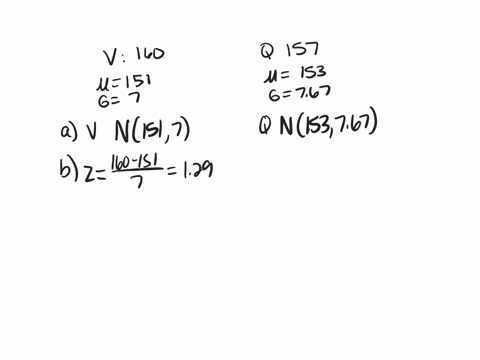 V: 160
μ = 151
σ = 7
Q 157
μ = 153
σ = 7.67
a) V N(151, 7)
Q N(153, 7.67)
b) Z = (160-151)/7 = 1.29